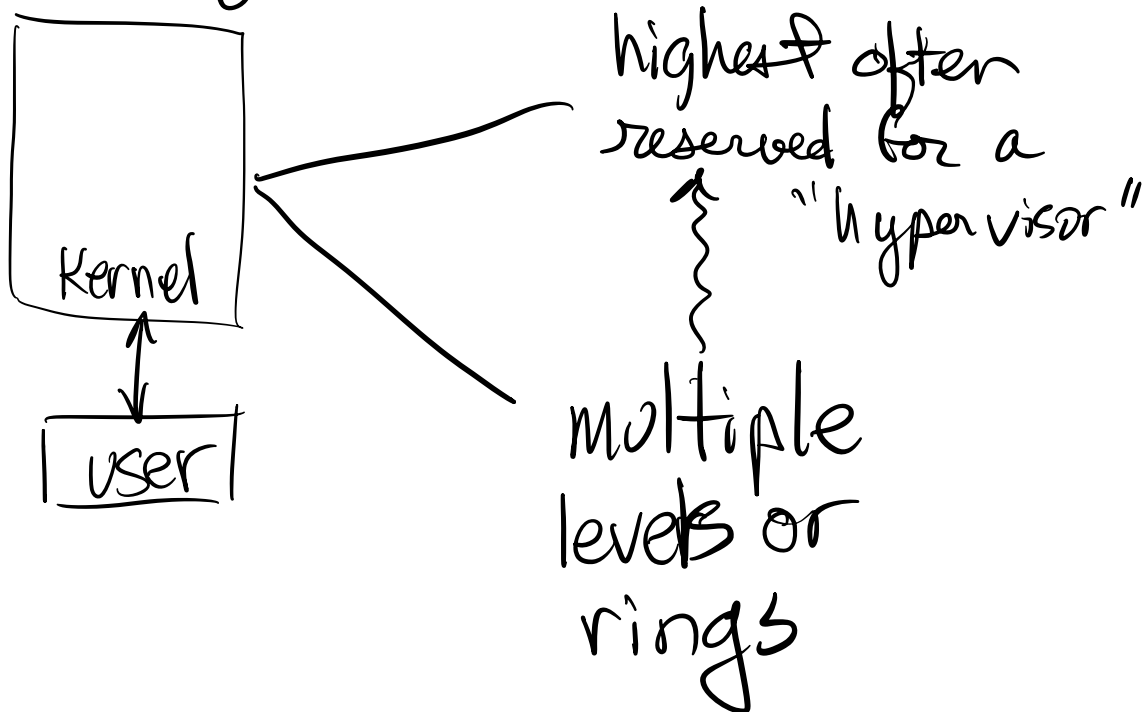 Kernel
user
highest often
reserved for a
"hypervisor"
multiple
levels or
rings